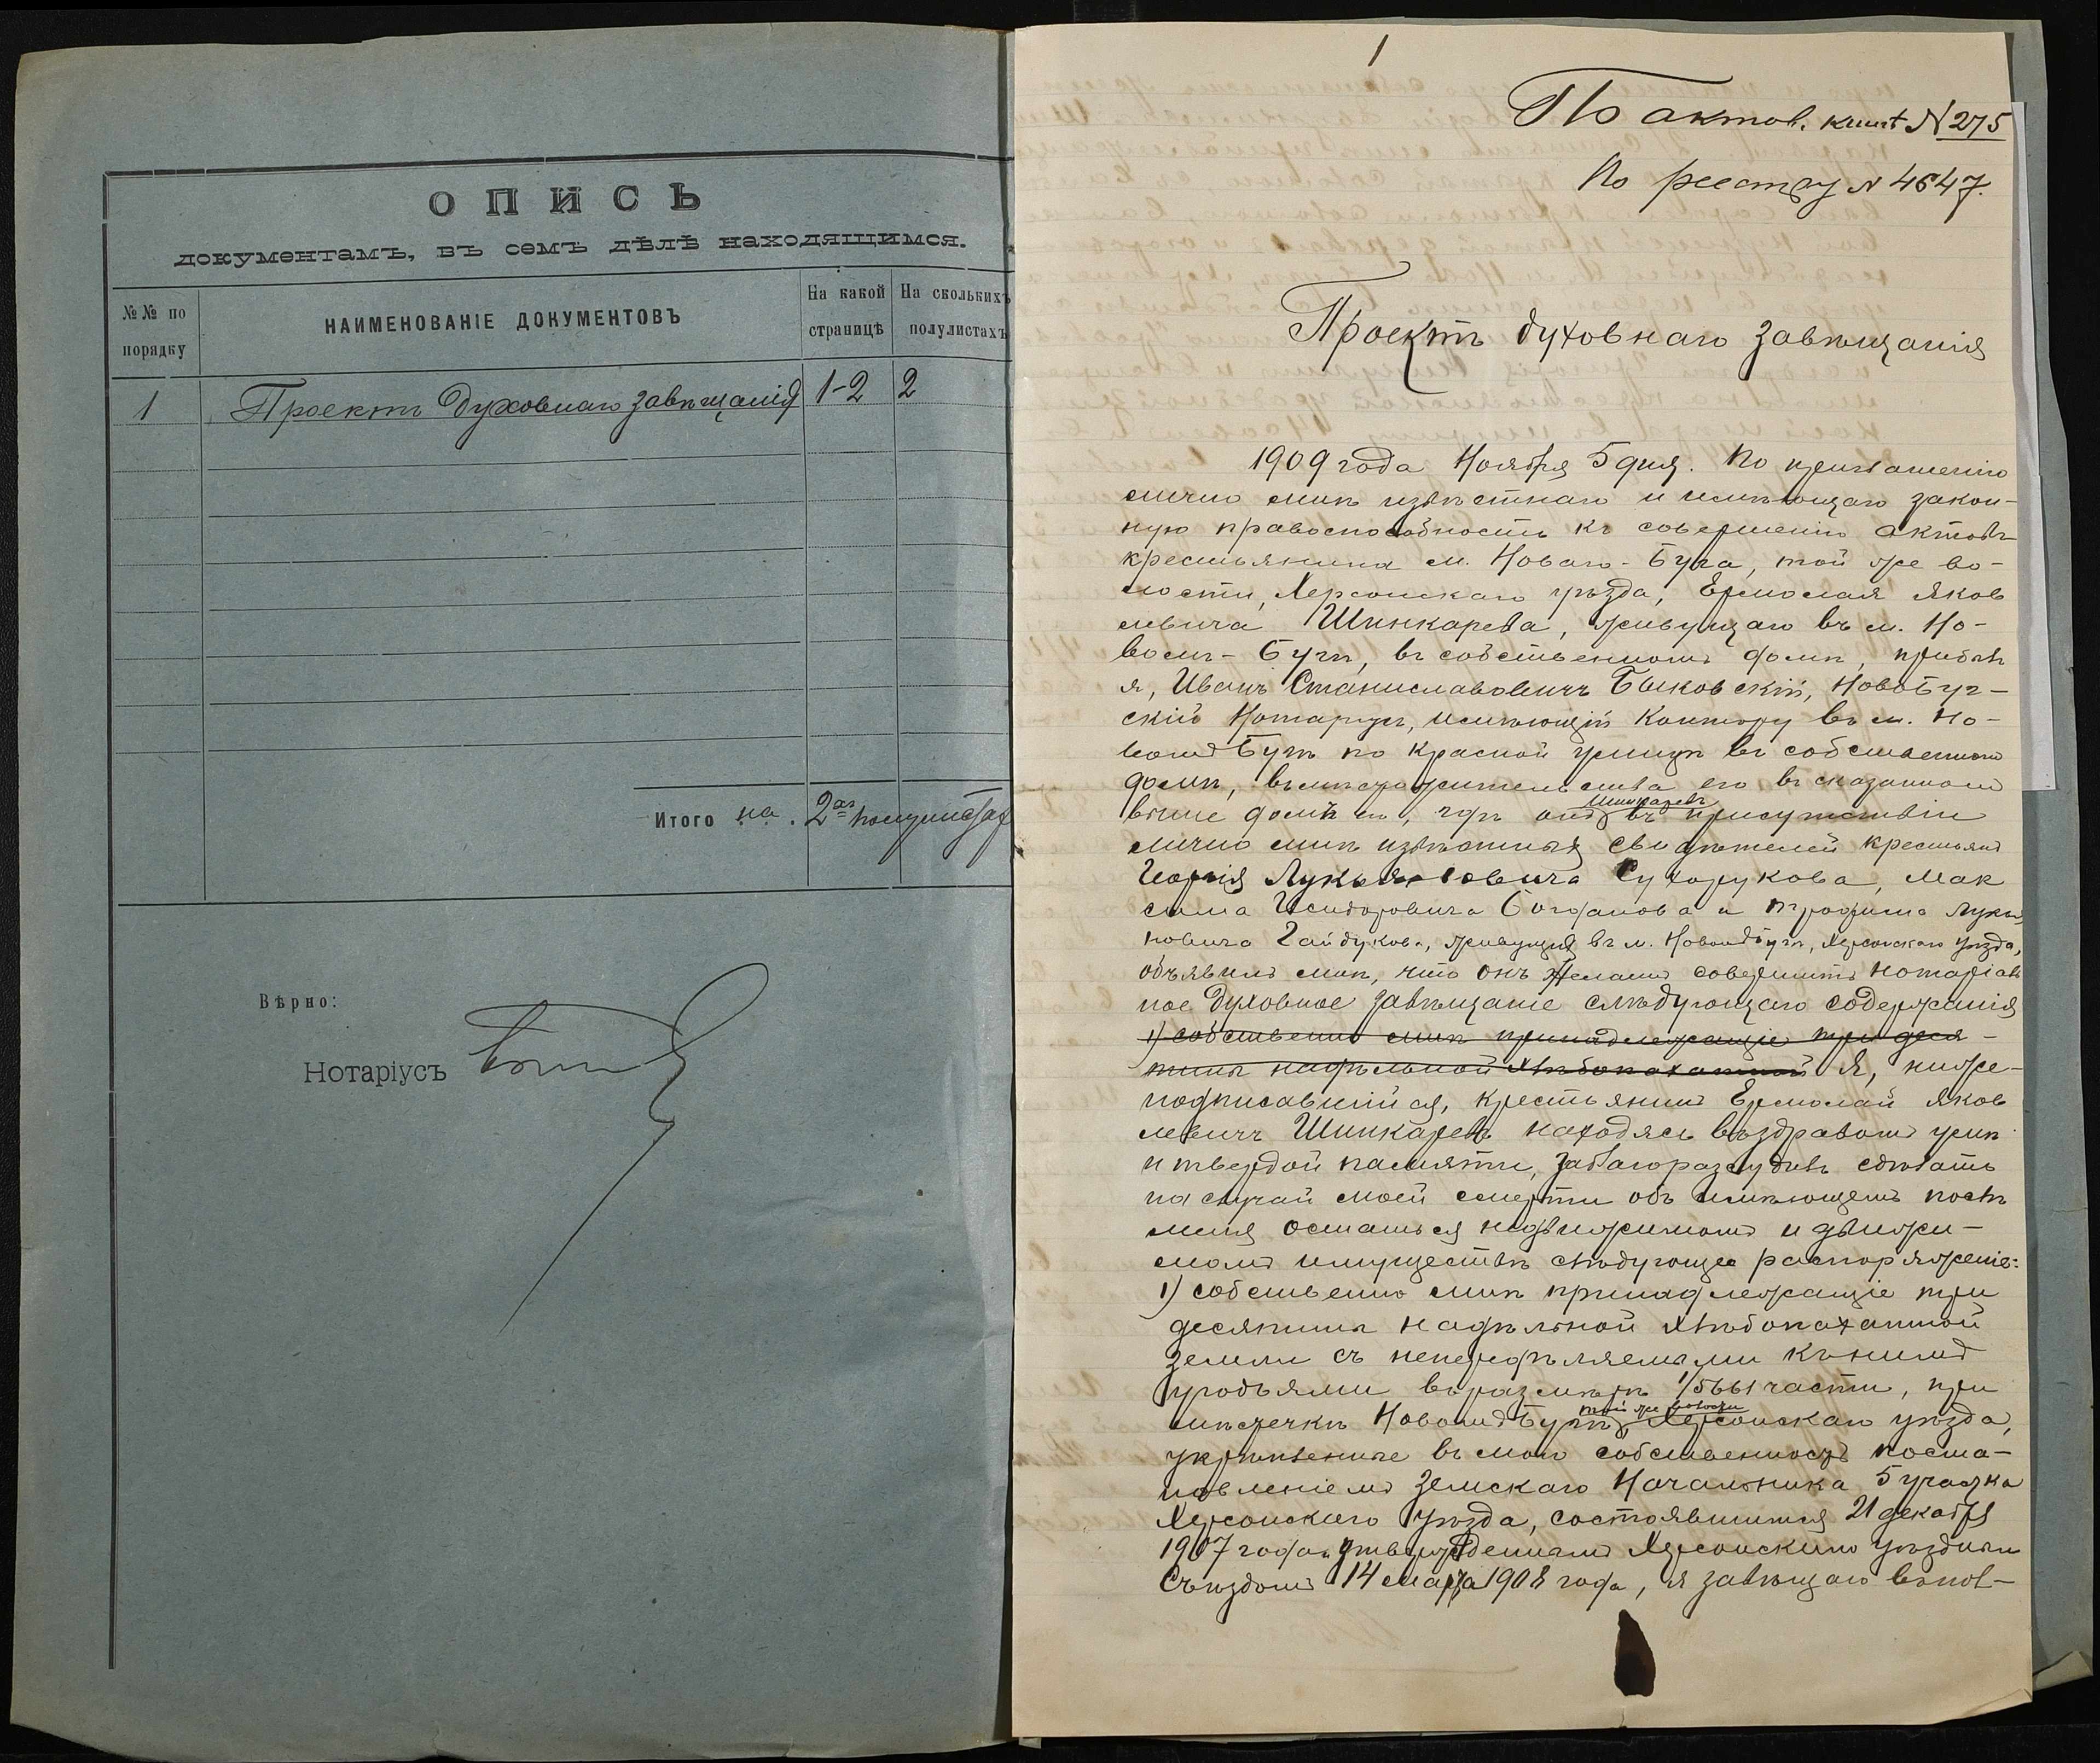 ОПИСЬ
документамъ, въ семъ дѣлѣ находящимся.
№№ по порядку
НАИМЕНОВАНІЕ ДОКУМЕНТОВЪ
На какой страницѣ
На сколькихъ полулистахъ
1 Проектъ духовнаго завѣщанія 1-2 2
Итого на 2хъ полулистах
Вѣрно:
Нотаріусъ
1
По актов. книгѣ N 275
По реестру N 4647.
Проектъ духовнаго завѣщанія
1909 года Ноября 5 дня. По приглашенію
лично мнѣ извѣстнаго и имѣющаго закон-
ную правоспособность къ совершенію актовъ
крестьянина м. Новаго-Буга, той же во-
лости, Херсонскаго уѣзда, Ермолая Яков
левича Шинкарева, живущаго въ м. Но-
вомъ-Бугѣ, въ собственномъ домѣ, прибылъ
я, Иванъ Станиславовичъ Быковскій, НовоБуг-
скій Нотаріусъ, имѣющій Контору въ м. Но-
вомъ Бугѣ по Красной улицѣ въ собственномъ
домѣ, въ мѣсто жительства его въ сказанномъ
Шинкаревъ
выше домѣ его, гдѣ онъ въ присутствіи
лично мнѣ извѣстныхъ свидѣтелей крестьянъ
Георгія Лукьяновича Сухорукова, Мак
сима Исидоровича Богданова и Трофима Лукья
новича Гайдукова, живущихъ въ м. Новомъ Бугѣ, Херсонскаго уѣзда,
объявилъ мнѣ, что онъ желаетъ совершить нотаріаль
ное духовное завѣщаніе слѣдующаго содержанія
1) собственно мнѣ принадлежащіе три деся-
тины надѣльной хлѣбопахатной Я, ниже-
подписавшійся, крестьянинъ Ермолай Яков
левичъ Шинкаревъ находясь въ здравомъ умѣ
и твердой памяти, заблагоразсудилъ сдѣлать
на случай моей смерти объ имѣющемъ послѣ
меня остаться недвижимомъ и движи-
момъ имуществѣ слѣдующее распоряженіе:
1) собственно мнѣ принадлежащіе три
десятины надѣльной хлѣбопахатной
земли съ непередѣляемыми къ нимъ
угодьями въ размѣрѣ 1/5661 части, при
той же волости
мѣстечкѣ Новомъ Бугѣ, Херсонскаго уѣзда,
укрѣпленные въ мою собственность поста-
новленіемъ Земскаго Начальника 5 участка
Херсонскаго уѣзда, состоявшимся 21 декабря
1907 года и утвержденнымъ Херсонскимъ Уѣзднымъ
Съѣздомъ 14 марта 1908 года, я завѣщаю въ пол-